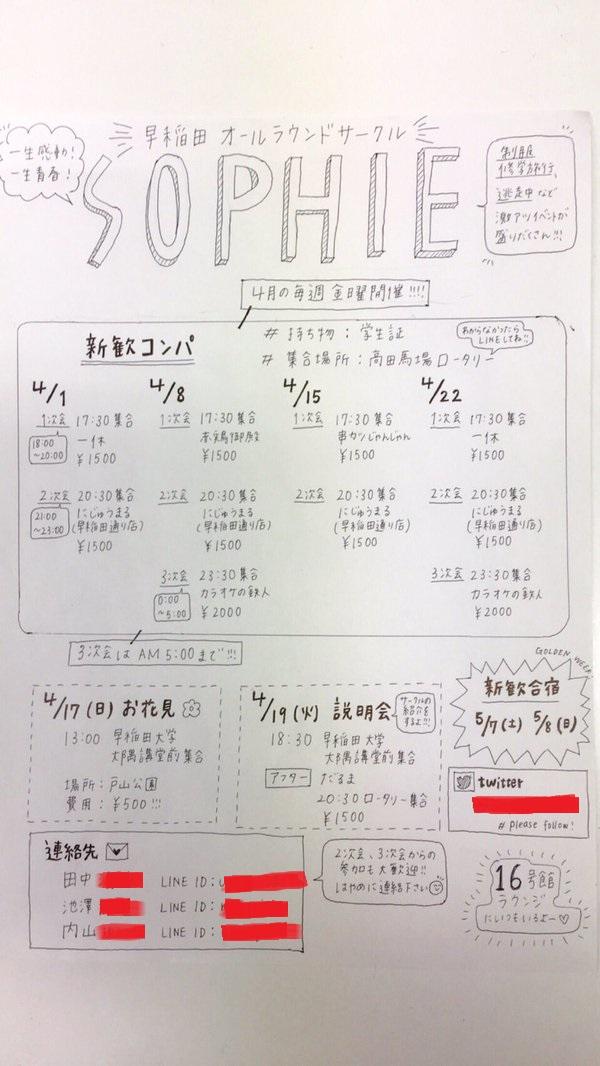 一生感動!
一生青春!
早稲田 オールラウンドサークル
SOPHIE
制服
修学旅行、
逃走中など
激アツイベントが
盛りだくさん!!!
4月の毎週 金曜開催!!!!
新歓コンパ
# 持ち物:学生証
# 集合場所:高田馬場ロータリー
わからなかったら
LINEしてね!!
4/1
1次会 17:30集合
18:00
~20:00
一休
¥1500
2次会 20:30集合
21:00
~23:00
にじゅうまる
(早稲田通り店)
¥1500
4/8
1次会 17:30集合
本鶏御殿
¥1500
2次会 20:30集合
にじゅうまる
(早稲田通り店)
¥1500
3次会 23:30集合
0:00
~5:00
カラオケの鉄人
¥2000
4/15
1次会 17:30集合
串カツじゃんじゃん
¥1500
2次会 20:30集合
にじゅうまる
(早稲田通り店)
¥1500
4/22
1次会 17:30集合
一休
¥1500
2次会 20:30集合
にじゅうまる
(早稲田通り店)
¥1500
3次会 23:30集合
カラオケの鉄人
¥2000
3次会はAM5:00まで!!!
4/17(日)お花見
13:00 早稲田大学
大隈講堂前集合
場所:戸山公園
費用:¥500!!!
4/19(火) 説明会
サークルの
紹介を
するよ!!!
18:30 早稲田大学
大隈講堂前集合
アフター だるま
20:30ロータリー集合
¥1500
GOLDEN WEEK
新歓合宿
5/7(土) 5/8(日)
twitter
#please follow!
連絡先
田中 LINE ID:
池澤 LINE ID:
内山 LINE ID:
2次会、3次会からの
参加も大歓迎!!
はやめに連絡下さい
16号館
ラウンジ
にいつもいるよー♡